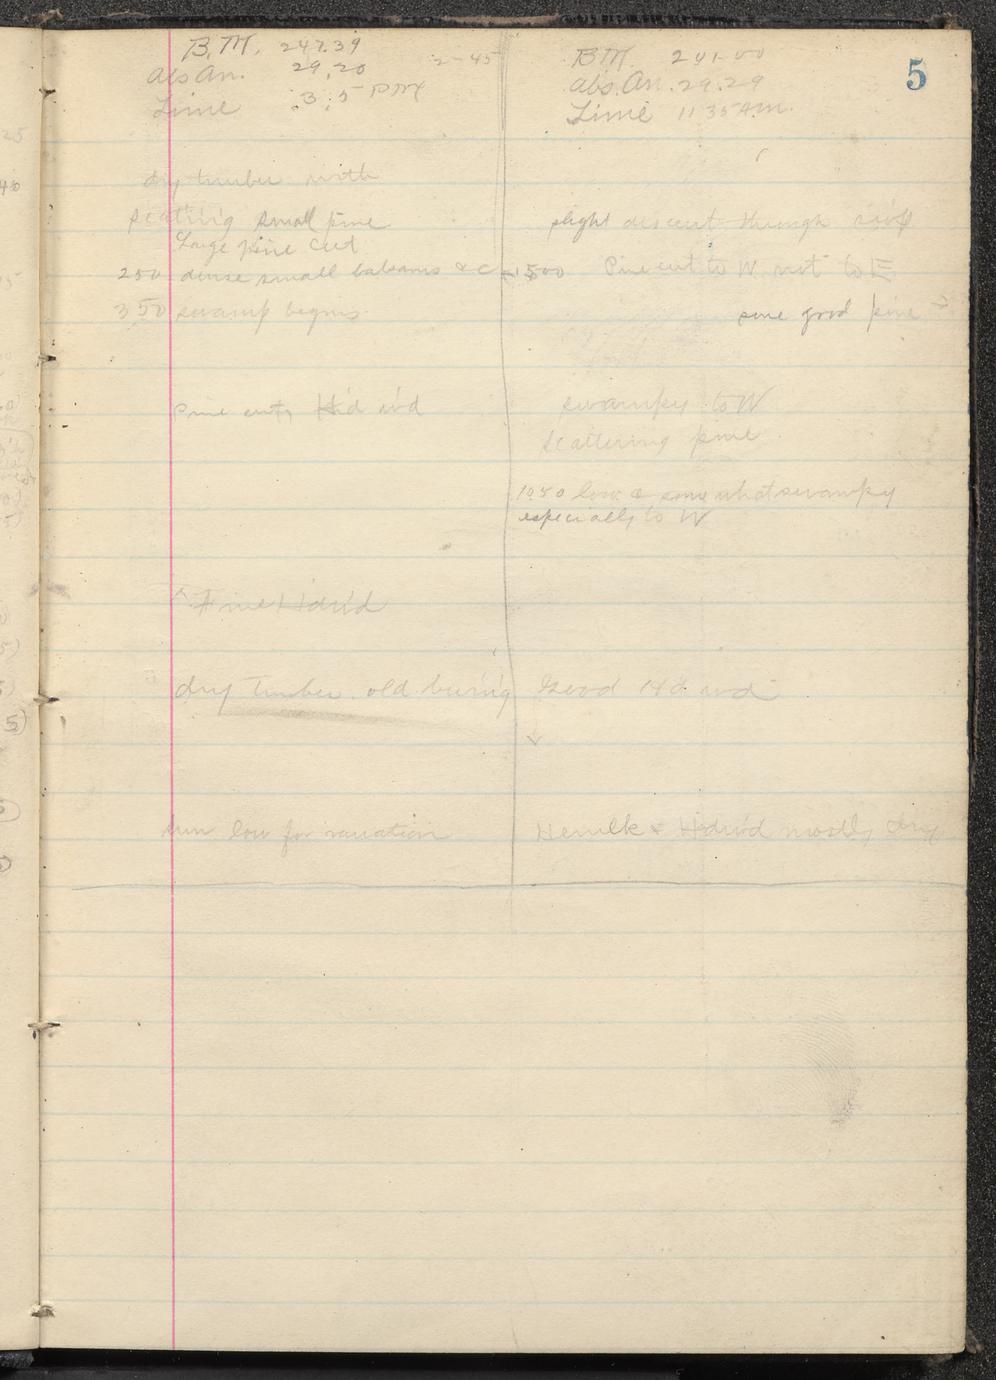 5
B.M. 247.39
Abs An. 29.20 2-45
Time 3.5 PM
dry timber with
scatting small pine
Large pine cut
250 dense small balsams & c
350 swamp begins
Pine cut, H'd w'd
Pine Hdw'd
dry timber. old burning
run low for variation
B.M. 201.00
abs. An. 29.29
Time 11 35 A.M.
slight descent through
1500 Pine cut to W. not to E
some good pine
swampy to W
scattering pine
1050 low & somewhat swampy
especially to W
Good H'd wd
Hemlk & Hdw'd mostly dry